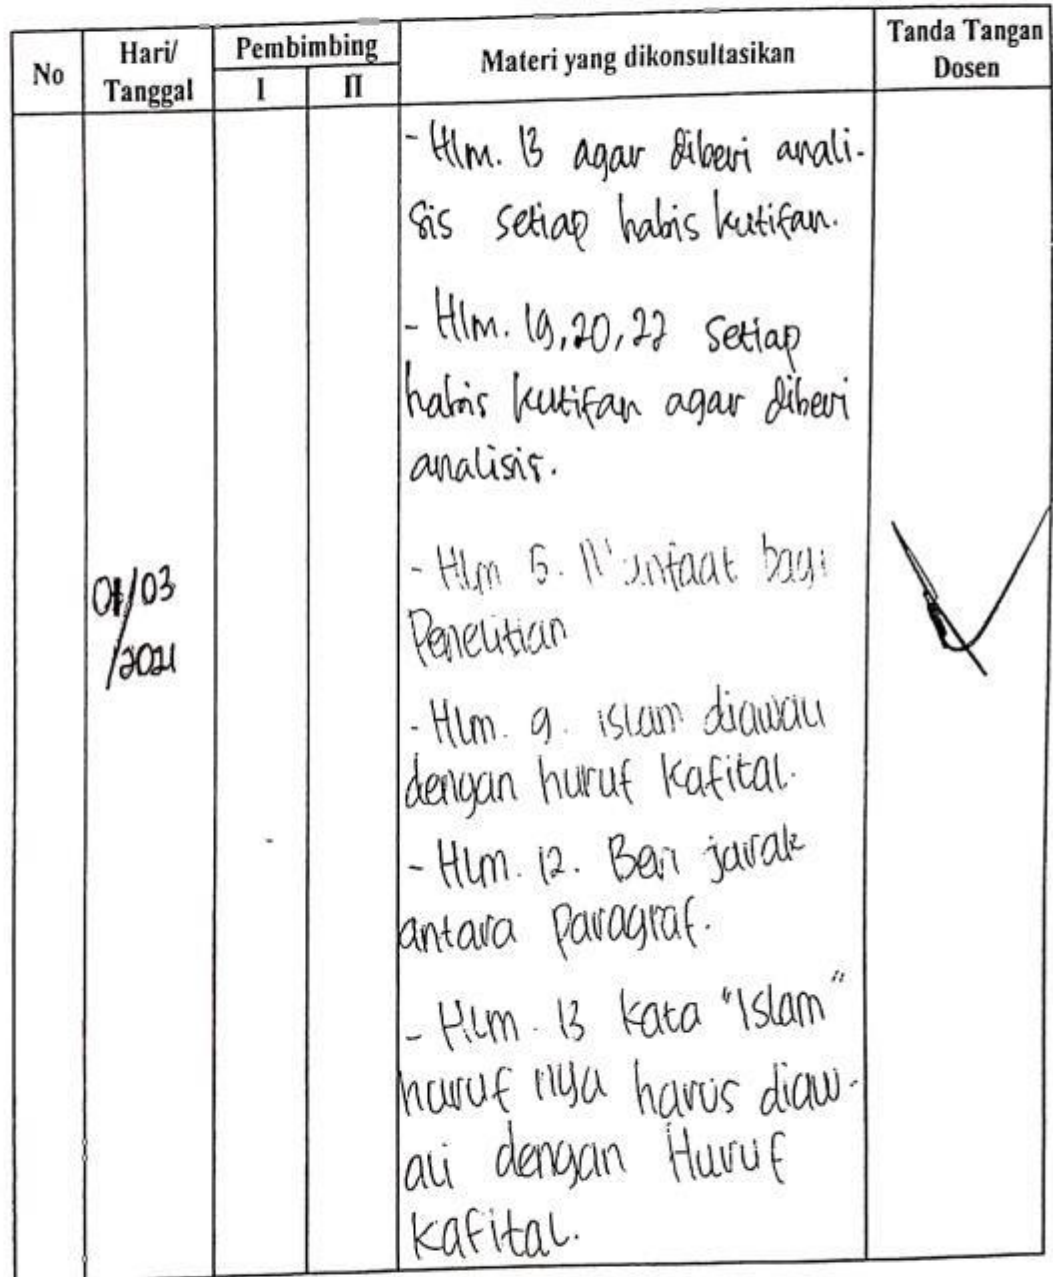 No
Hari/
Tanggal
Pembimbing
I II
Materi yang dikonsultasikan
Tanda Tangan
Dosen
- Hlm. 13 agar diberi anali-
sis setiap habis kutifan.
- Hlm. 19, 20, 22 setiap
habis kutifan agar diberi
analisis.
- Hlm 5. bagi
Penelitian
/03
/2021
- Hlm. 9. islam diawali
dengan huruf kafital.
- Hlm. 12. Beri jarak
antara Paragraf.
- Hlm. 13 kata "Islam"
huruf nya harus diaw-
ali dengan Huruf
kafital.